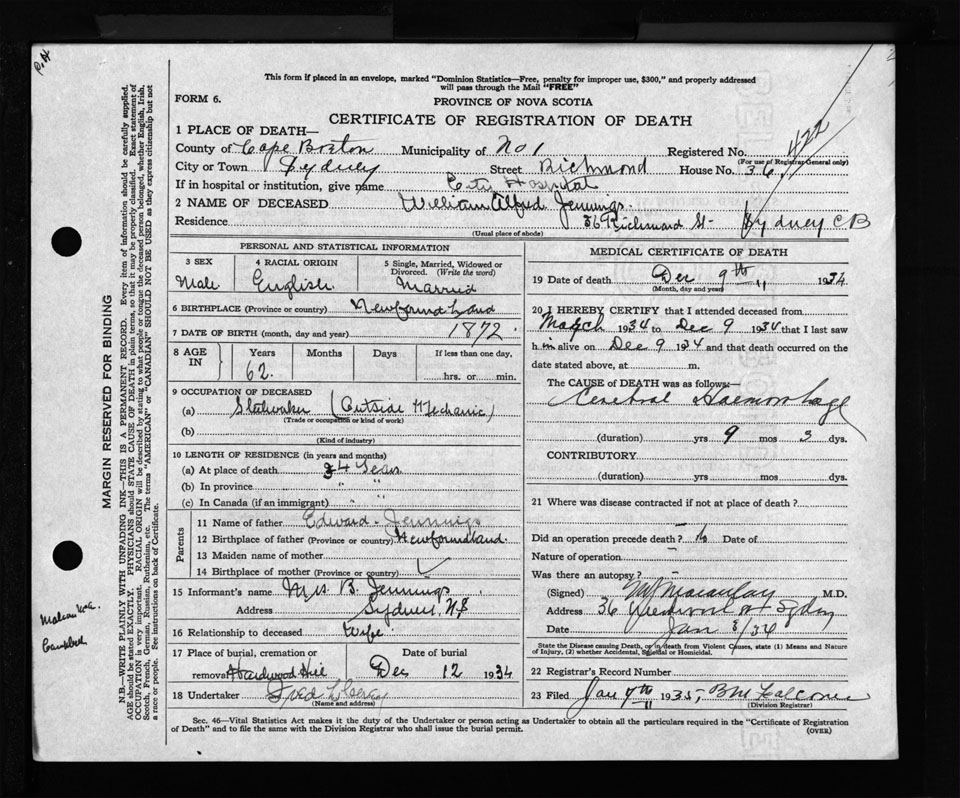 This form if placed in an envelope, marked "Dominion Statistics—Free, penalty for improper use, $300," and properly addressed
will pass through the Mail "FREE"
FORM 6.
PROVINCE OF NOVA SCOTIA
CERTIFICATE OF REGISTRATION OF DEATH
1 PLACE OF DEATH—
County of Cape Breton Municipality of No 1 Registered No. 422
(For use of Registrar General only)
City or Town Sydney Street Richmond House No. 36
If in hospital or institution, give name City Hospital
2 NAME OF DECEASED William Alfred Jennings.
Residence 36 Richmond St- Sydney CB
(Usual place of abode)
PERSONAL AND STATISTICAL INFORMATION
3 SEX
Male
4 RACIAL ORIGIN
English
5 Single, Married, Widowed or
Divorced. (Write the word)
Married
6 BIRTHPLACE (Province or country) Newfoundland
7 DATE OF BIRTH (month, day and year) 1872.
8 AGE
IN
Years
62.
Months
Days
If less than one day,
hrs. or min.
9 OCCUPATION OF DECEASED
(a) (Outside Mechanic)
(Trade or occupation or kind of work)
(b)
(Kind of industry)
10 LENGTH OF RESIDENCE (in years and months)
(a) At place of death 34 Years
(b) In province " "
(c) In Canada (if an immigrant) " "
Parents
11 Name of father Edward Jennings
12 Birthplace of father (Province or country) Newfoundland.
13 Maiden name of mother
14 Birthplace of mother (Province or country)
15 Informant's name Mrs B. Jennings
Address Sydney N.S
16 Relationship to deceased Wife
17 Place of burial, cremation or
removal Hardwood Hill
Date of burial
Dec 12 1934
18 Undertaker Fred
(Name and address)
MEDICAL CERTIFICATE OF DEATH
19 Date of death Dec 9th 1934
(Month, day and year)
20 I HEREBY CERTIFY that I attended deceased from
March 1934 to Dec 9 1934 that I last saw
him alive on Dec 9 1934 and that death occurred on the
date stated above, at m.
The CAUSE of DEATH was as follows:—
Cerebral Haemorrhage
(duration) yrs 9 mos 3 dys.
CONTRIBUTORY
(duration) yrs mos dys.
21 Where was disease contracted if not at place of death?
Did an operation precede death? No Date of
Nature of operation
Was there an autopsy?
(Signed) Macaulay M.D.
Address 36 St Sydney
Date Jan 8/34
State the Disease causing Death, or in death from Violent Causes, state (1) Means and Nature
of Injury, (2) whether Accidental, Suicidal or Homicidal.
22 Registrar's Record Number
23 Filed Jan 7th 1935, B M Falconer
(Division Registrar)
Sec. 46—Vital Statistics Act makes it the duty of the Undertaker or person acting as Undertaker to obtain all the particulars required in the "Certificate of Registration
of Death" and to file the same with the Division Registrar who shall issue the burial permit.
(OVER)
MARGIN RESERVED FOR BINDING
N.B.—WRITE PLAINLY WITH UNFADING INK—THIS IS A PERMANENT RECORD. Every item of information should be carefully supplied.
AGE should be stated EXACTLY. PHYSICIANS should STATE CAUSE OF DEATH in plain terms, so that it may be properly classified. Exact statement of
OCCUPATION is very important. RACIAL ORIGIN will be described by stating to what people or tongue the deceased person belonged, whether English, Irish,
Scotch, French, German, Russian, Ruthenian, etc. The terms "AMERICAN" or "CANADIAN" SHOULD NOT BE USED as they express citizenship but not
a race or people. See instructions on back of Certificate.